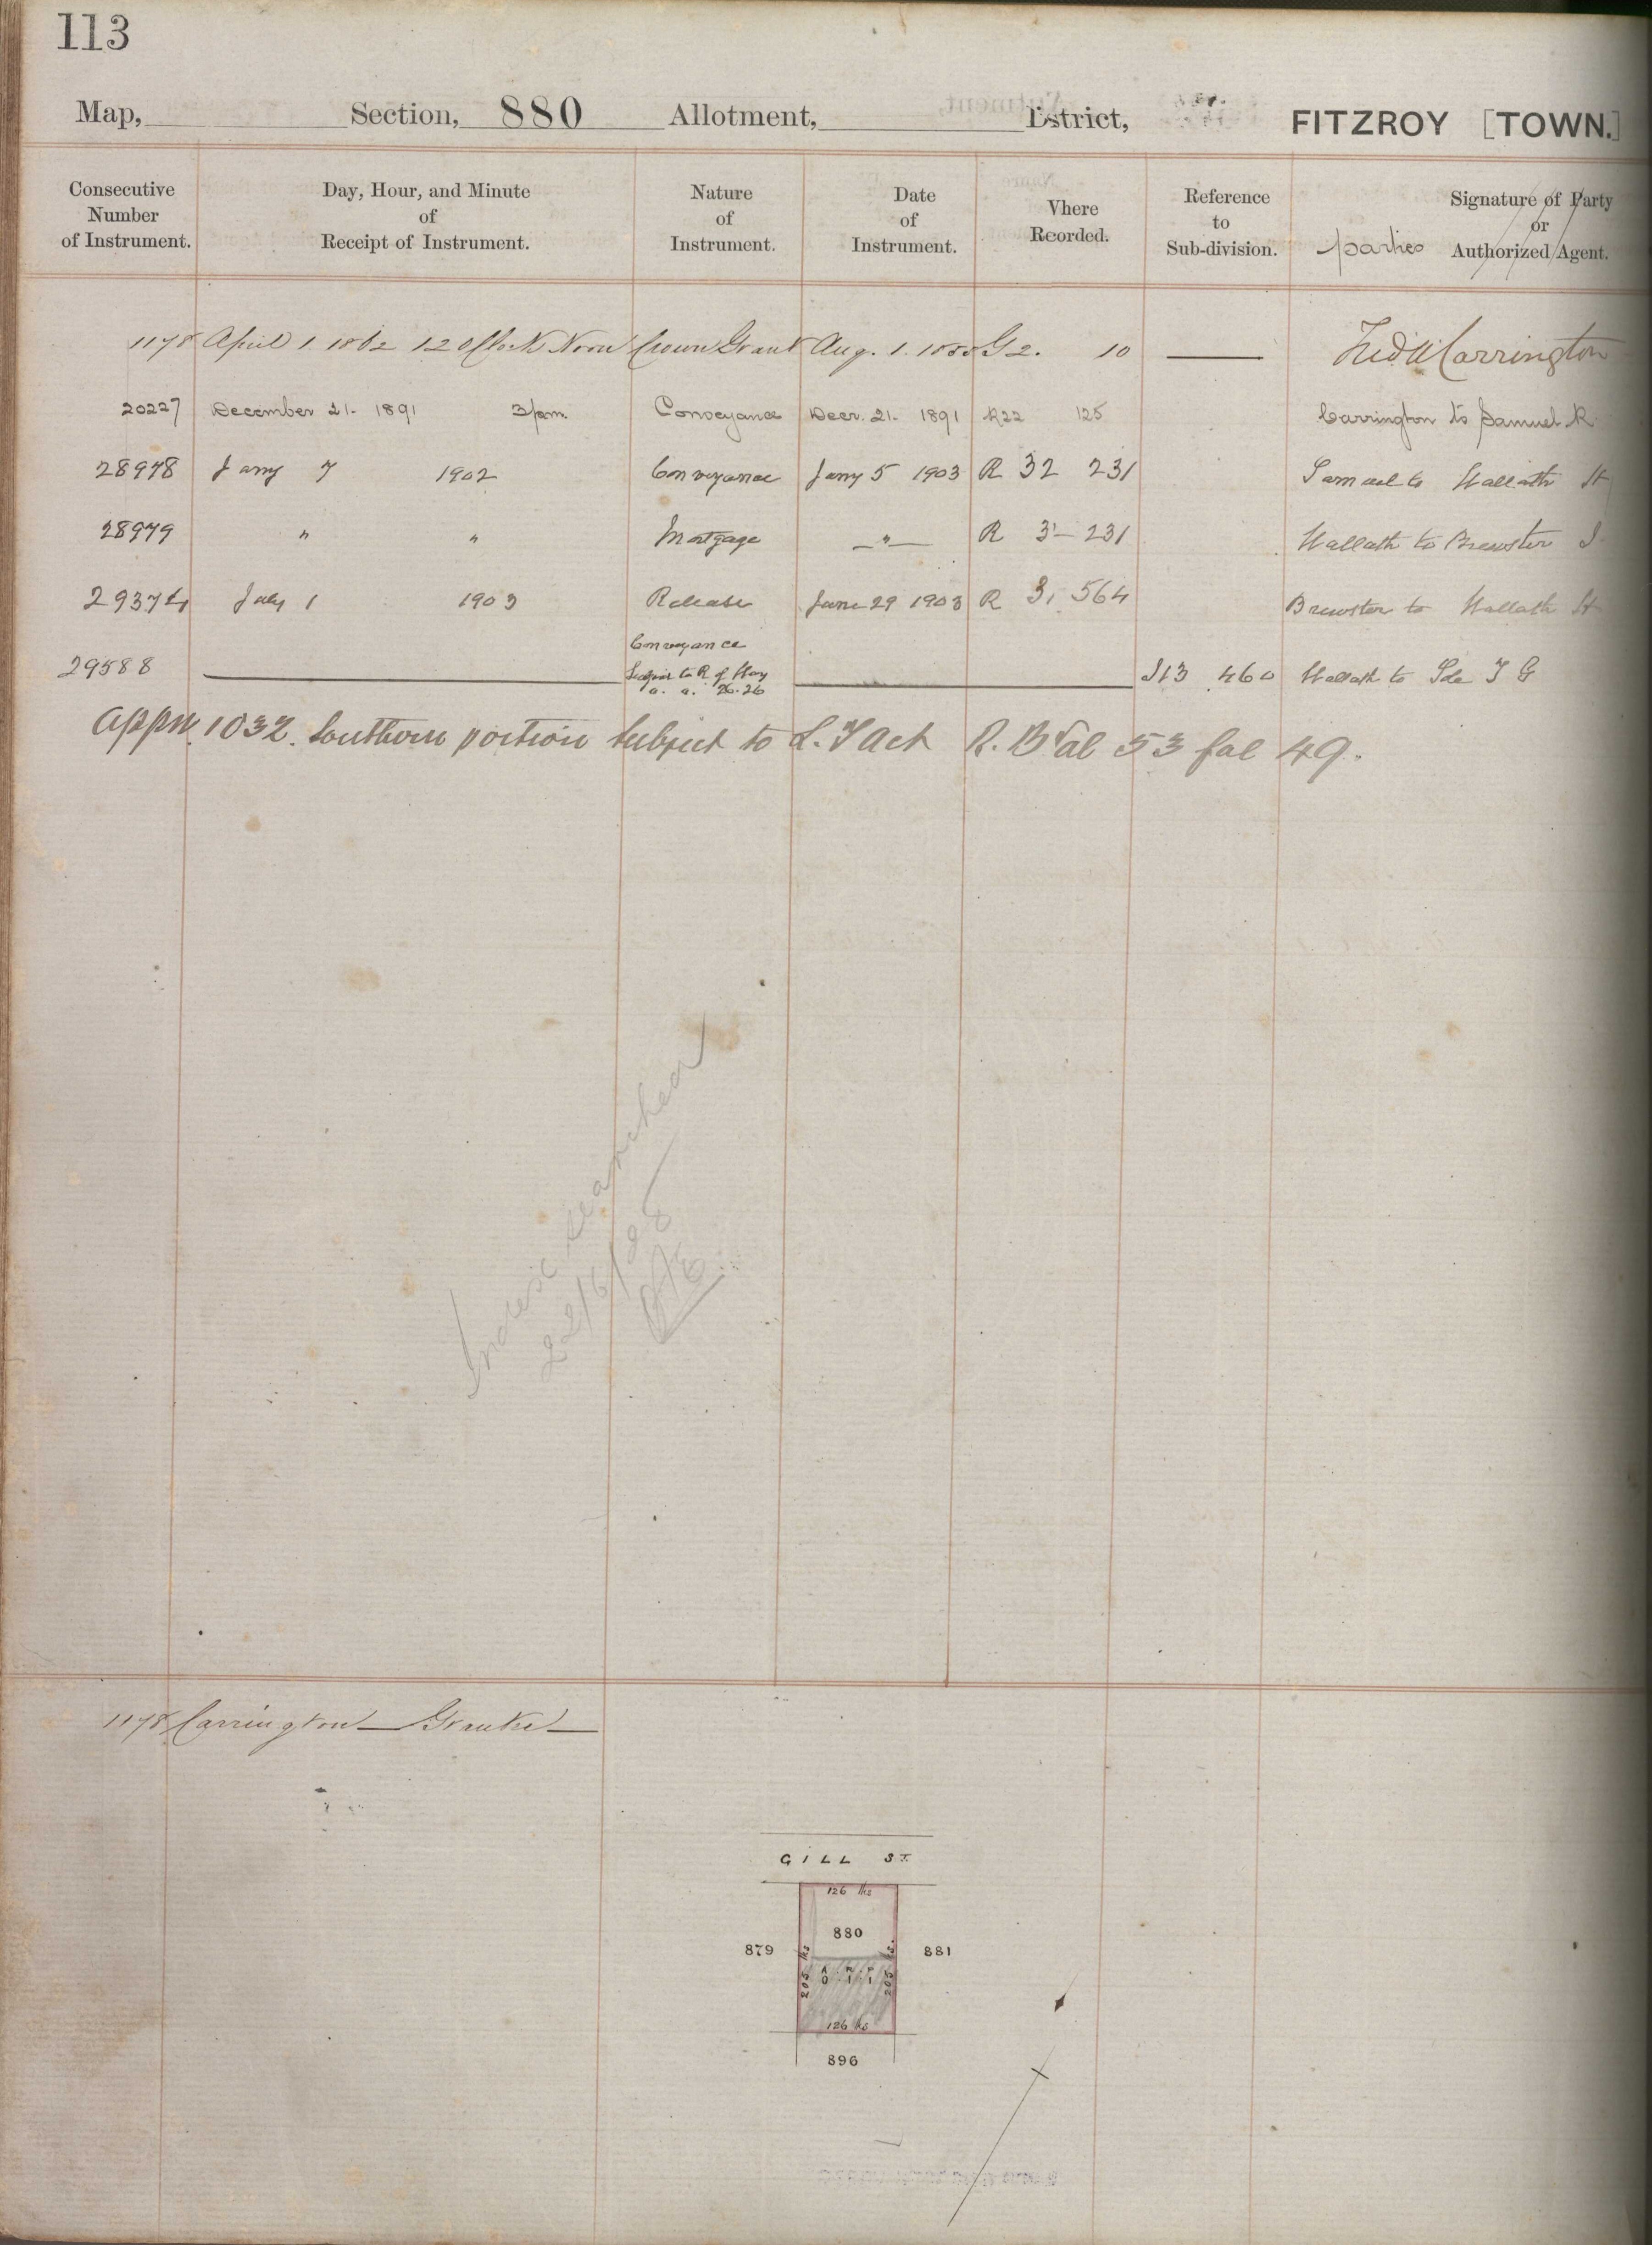 113
Map, Section, 880 Allotment, District, FITZROY [TOWN.]
Consecutive Number of Instrument. Day, Hour, and Minute of Receipt of Instrument. Nature of Instrument. Date of Instrument. Where Recorded. Reference to Sub-division. parties Signature of Party or Authorized Agent.
1178 April 1 1862 12 OClock Noon Crown Grant Aug. 1. 1855 G 2. 10 Fred A Carrington
20227 December 21. 1891 3 p.m. Conveyance Decr. 21. 1891 R22 125 Carrington to Samuel R
28978 Jany 7 1902 Conveyance Jany 5 1903 R 32 231 Samuel to Hallath H
28979 " " Mortgage " R 3 231 Hallath to Brewster
29374 July 1 1903 Release June 29 1903 R 3 564 Brewster to Hallath H
Conveyance
29588 Subject to R of Way J13 460 Hallath to T G
a. a. 26.26
Appn. 1032. Southern portion subject to L. T Act R. B Vol 53 fol 49.
Index searched
22/6/28
1178 Carrington Grantee
GILL ST.
126 lks
880
879 205 lks 205 lks. 881
A. R. P.
0. 1. 1
126 lks
896